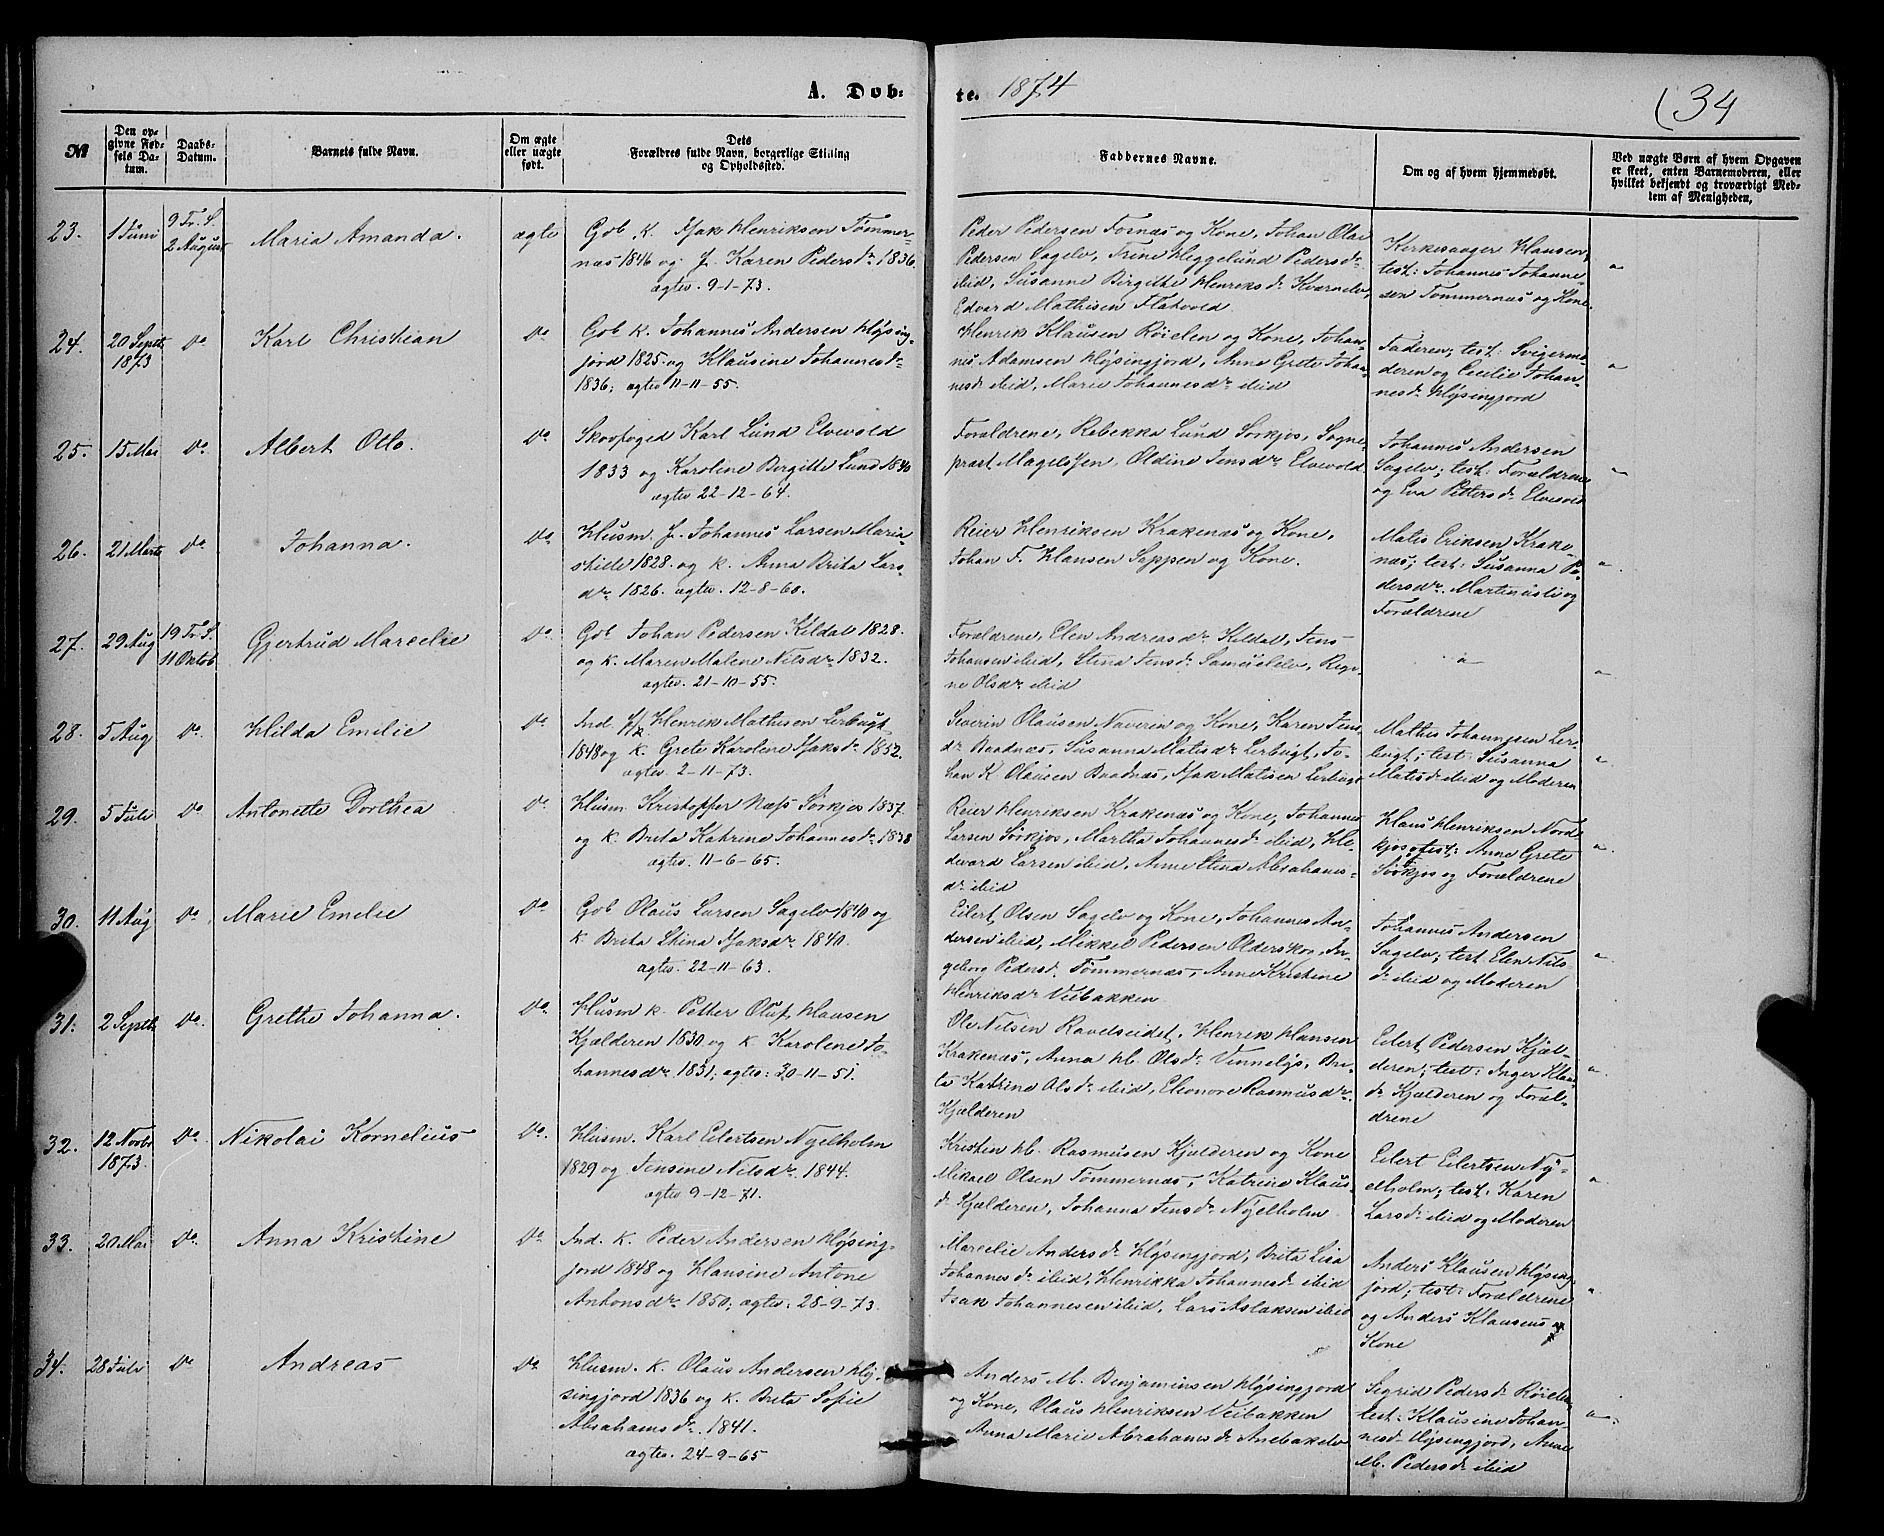 A. Døb- te. 1874
34
№
Den op-
givne Fød-
sels Da-
tum.
Daabs-
Datum.
Barnets fulde Navn.
Om ægte
eller uægte
født.
Dets
Forældres fulde Navn, borgerlige Stilling
og Opholdssted.
Faddernes Navne.
Om og af hvem hjemmedøbt.
Ved uægte Børn af hvem Opgaven
er skeet, enten Barnemoderen, eller
hvilket bekjendt og troværdigt Med-
lem af Menigheden.
23.
1 Juni
9 Tr. S.
2 August
Maria Amanda.
ægte
Gbb K. Isak Henriksen Tømmer-
næs 1846 og f. Karen Pedersdr 1836.
agtev. 9-1-73.
Peder Pedersen Fornæs og Kone, Johan Olai
Pedersen Sagelv, Trine Heggelund Pedersdr
ibid, Susanne Birgitte Henriksdr Kvænelv,
Edvard Mathisen Flatvold
Kirkesanger Hansen,
test: Johannes Johanne-
sen Tømmernæs og Kone.
"
24.
20 Septb
1873
Do
Karl Christian
Do
Gbb K. Johannes Andersen Høÿsing-
fjord 1825 og Klausine Johannesdr
1836; agtev 11-11-55.
Henrik Klausen Røielen og Kone, Johan-
nes Adamsen Høÿsingfjord, Anne Grete Johan-
nesdr ibid, Marie Johannesdr ibid
Faderen; test: Svigermo-
deren og Cecilie Johan-
nesdr Høÿsingfjord
"
25.
15 Mai
Do
Albert Otto.
Do
Skovfoged Karl Lund Elvevold
1833 og Karoline Birgitte Lund 1840
agtev 22-12-64.
Forældrene, Rebekka Lund Sørkjos, Sogne-
præst Magelssen, Oldine Jensdr Elvevold
Johannes Andersen
Sagelv; test: Forældrene
og Eva Pettersdr Elvevold
"
26.
21 Marts
Do
Johanna.
Do
Husm. f. Johannes Larsen Maria-
shille 1828 og K. Anna Brita Lars-
dr 1826. agtev. 12-8-60.
Reier Henriksen Krakenæs og Kone,
Johan F. Hansen Seppen og Kone.
Matis Eriksen Krake-
næs; test: Susanna Pe-
dersdr Martinusli og
Forældrene
"
27.
29 Aug
19 Tr. S.
11 Oktob
Gjertrud Marcelie
Do
Gbb Johan Pedersen Kildal 1828.
og K. Maren Malene Nilsdr 1832.
agtev. 21-10-55.
Forældrene, Elen Andreasdr Kildal, Jens
Johansen ibid, Stina Jensdr Samuelelv, Regi-
ne Olsdr ibid
"
"
28.
5 Aug
Do
Hilda Emilie
Do
Ind. f/k. Henrik Mathisen Lerbugt
1848 og K. Grete Karoline Isaksdr 1852.
agtev. 2-11-73.
Severin Olausen Naveren og Kone, Karen Jens
dr Baadnæs, Susanna Matisdr Lerbugt, Jo-
han K. Olausen Baadnæs, Isak Matisen Lerbugt
Mathis Johannesen Ler-
bugt; test: Susanna
Matsdr ibid og Moderen
"
29.
5 Juli
Do
Antonette Dorthea
Do
Husm Kristopher Næss Sørkjos 1837.
og K. Brita Katrine Johannesdr 1838
agtev. 11-6-65.
Reier Henriksen Krakenæs og Kone, Johannes
Larsen Sørkjos, Martha Johannesdr ibid, He-
devard Larsen ibid, Anne Stina Abrahams-
dr ibid
Hans Henriksen Nord-
kjos; test: Anne Grete
Sørkjos og Forældrene
"
30.
11 Aug
Do
Marie Emelie
Do
Gbb Olaus Larsen Sagelv 1840 og
K. Brita Stina Isaksdr 1840.
agtev. 22-11-63.
Eilert Olsen Sagelv og Kone, Johannes An-
dersen ibid, Mikkel Pedersen Olderskog, In-
geborg Pedersdr Tømmernæs, Anne Kristine
Henriksdr Veibakken
Johannes Andersen
Sagelv; test: Elen Nils
dr ibid og Moderen
"
31.
2 Septb
Do.
Grethe Johanna.
Do
Husm K. Petter Oluf Hansen
Kjælderen 1830 og K. Karoline Jo-
hannesdr 1831; agtev: 30-11-51.
Ole Nilsen Ravelseidet, Henrik Hansen
Krakenæs, Anna M. Olsdr Vinnelÿs, Bri-
ta Katrine Olsdr ibid, Eleonore Rasmusdr
Kjælderen
Eilert Pedersen Kjæl-
deren; test: Inger Klaus
dr Kjælderen og Foræl-
drene
"
32.
12 Novbr
1873.
Do
Nikolai Kornelius
Do.
Husm. Karl Eilertsen Nÿelholm
1829 og Jensine Nilsdr 1844.
agtev 9-12-71.
Kristen M. Rasmusen Kjælderen og Kone
Mikael Olsen Tømmernæs, Katrine Klaus-
dr Kjælderen, Johanna Jensdr Nÿelholm
Eilert Eilertsen Nÿ-
elholm; test: Karen
Larsdr ibid og Moderen
"
33.
20 Mai
Do.
Anna Kristine
Do
Ind. K. Peder Andersen Høÿsing-
fjord 1848 og Hansine Antone
Antonsdr 1850; agtev: 28-9-73.
Marcelie Andersdr Høÿsingfjord, Brita Lisa
Johannesdr ibid, Henrikka Johannesdr ibid
Isak Johannesen ibid, Lars Aslaksen ibid
Anders Klausen Høÿsing-
fjord; test: Forældrene
og Anders Klausens
Kone
"
34.
28 Juli
Do
Andreas
Do
Husm. K. Olaus Andersen Høÿ-
singfjord 1836 og K. Brita Sofie
Abrahamsdr 1841.
agtev. 24-9-65
Anders M. Benjaminsen Høÿsingfjord
og Kone, Olaus Henriksen Veibakken
Anna Marie Abrahamsdr Anebakelv
Sigrid Pedersdr Røielen
test: Klausine Johan-
nesdr Høÿsingfjord, Anne
M. Pedersdr ibid
"